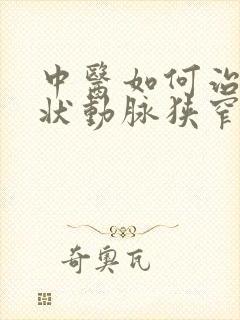 中醫如何治
狀動脉狹窄
奇奥瓦